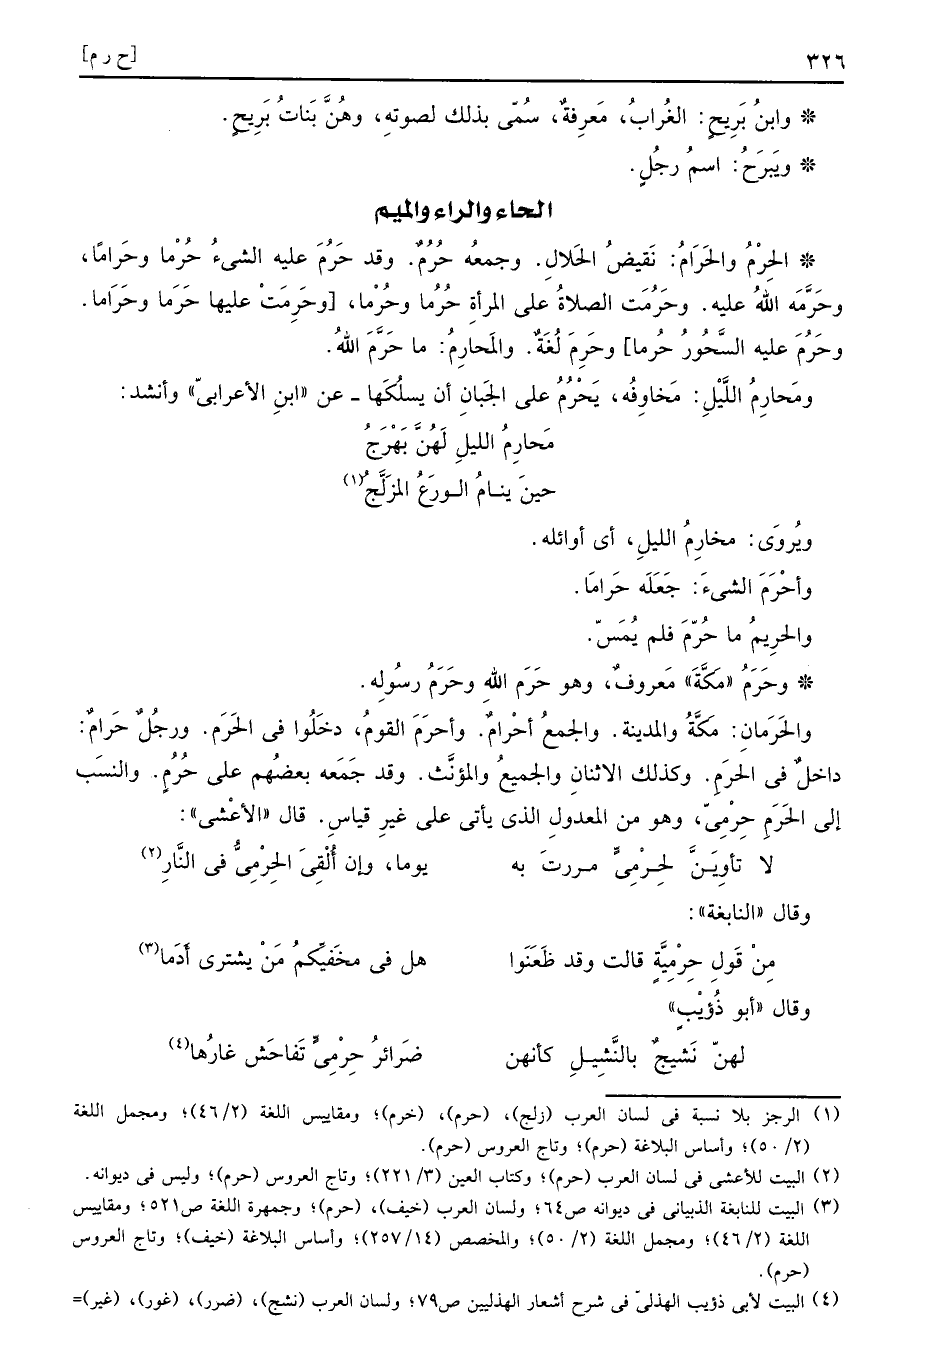 ٣٢٦ [ح ر م]
* وابنُ بَرِيحٍ: الغُرابُ، مَعرِفةٌ، سُمّى بذلك لصوتهِ، وهُنَّ بَناتُ بَرِيحٍ.
* ويَبرَحُ: اسمُ رجُلٍ.
الحاء والراء والميم
* الحِرْمُ والحَرَامُ: نَقيضُ الحَلالِ. وجمعُه حُرُمٌ. وقد حَرُمَ عليه الشىءُ حُرْما وحَرامًا،
وحَرَّمَه اللهُ عليه. وحَرُمَت الصلاةُ على المرأة حُرُما وحُرْما، [وحَرِمَتْ عليها حَرَما وحَرَاما.
وحَرُمَ عليه السَّحُورُ حُرما] وحَرِمَ لُغَةٌ. والمَحارِمُ: ما حَرَّمَ اللهُ.
ومَحارِمُ اللَّيْلِ: مَخاوِفُه، يَحْرُمُ على الجَبانِ أن يسلُكَها ـ عن «ابنِ الأعرابىّ» وأنشد:
مَحارِمُ الليلِ لَهُنَّ بَهْرَجُ
حينَ ينـامُ الـورَعُ المُزَلَّجُ(١)
ويُروَى: مخارِمُ الليلِ، أى أوائله.
وأحْرَمَ الشىءَ: جَعَلَه حَرامَا.
والحريمُ ما حُرّمَ فلم يُمَسّ.
* وحَرَمُ «مَكَّةَ» مَعروفٌ، وهو حَرَم اللهِ وحَرَمُ رسولِه.
والحَرَمانِ: مَكَّةُ والمدينة. والجمعُ أحْرامٌ. وأحرَمَ القومُ، دخَلُوا فى الحَرَم. ورجُلٌ حَرامٌ:
داخلٌ فى الحَرَمِ. وكذلك الاثنانِ والجميعُ والمؤنَّث. وقد جَمَعه بعضُهم على حُرُمٍ. والنسَب
إلى الحَرَمِ حِرْمِىّ، وهو من المعدول الذى يأتى على غيرِ قياسٍ. قال «الأعْشى»:
لا تأوِيَـنَّ لحِـرْمِىٍّ مـررتَ به يوما، وإن أُلْقِىَ الحِرْمِىُّ فى النَّارِ(٢)
وقال «النابغة»:
مِنْ قَولِ حِرْمِيَّةٍ قالت وقد ظَعَنَوا هل فى مخَفيِّكمُ مَنْ يشترى أدَما(٣)
وقال «أبو ذُؤيْبٍ»
لهنّ نَشيجٌ بالنَّشِيـلِ كأنهن ضَرَائرُ حِرْمِىٍّ تَفاحَش غارُها(٤)
(١) الرجز بلا نسبة فى لسان العرب (زلج)، (حرم)، (خرم)؛ ومقاييس اللغة (٢/ ٤٦)؛ ومجمل اللغة
(٢/ ٥٠)؛ وأساس البلاغة (حرم)؛ وتاج العروس (حرم).
(٢) البيت للأعشى فى لسان العرب (حرم)؛ وكتاب العين (٣/ ٢٢١)؛ وتاج العروس (حرم)؛ وليس فى ديوانه.
(٣) البيت للنابغة الذبيانى فى ديوانه ص٦٤؛ ولسان العرب (خيف)، (حرم)؛ وجمهرة اللغة ص٥٢١؛ ومقاييس
اللغة (٢/ ٤٦)؛ ومجمل اللغة (٢/ ٥٠)؛ والمخصص (١٤/ ٢٥٧)؛ وأساس البلاغة (خيف)؛ وتاج العروس
(حرم).
(٤) البيت لأبى ذؤيب الهذلىّ فى شرح أشعار الهذليين ص٧٩؛ ولسان العرب (نشج)، (ضرر)، (غور)، (غير)=